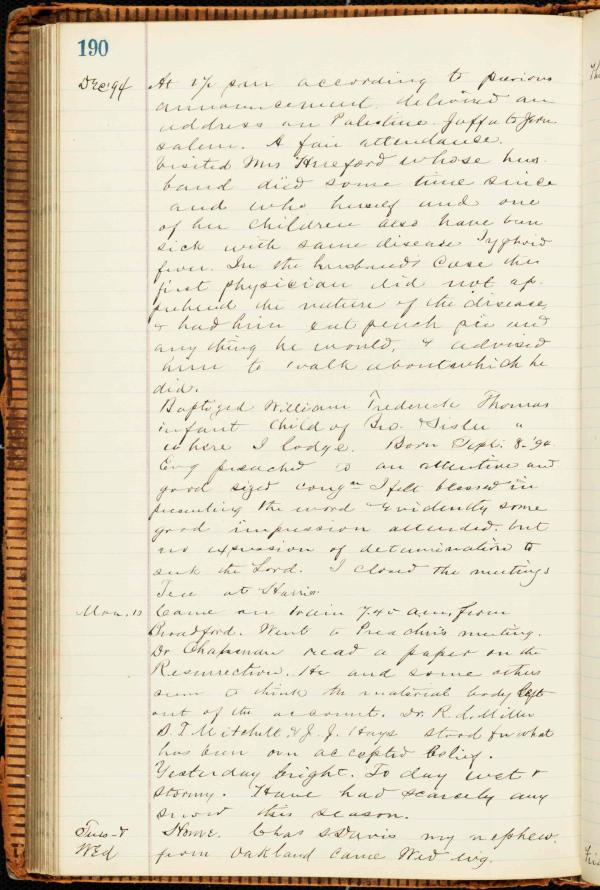 190
Dec '94 At 1½ p.m according to previous
announcement delivered an
address on Palestine Jaffa to Jeru
salem. A fair attendance.
Visited Mrs Hereford whose hus
band died some time since
and who herself and one
of her children also have been
sick with same disease Typhoid
fever. In the husband's case the
first physician did not ap-
prehend the nature of the disease
& had him eat peach pie and
any thing he would, & advised
him to walk about which he
did.
Baptized William Frederick Thomas
infant child of Geo. & Sister "
where I lodge. Born Sept. 8-'94.
Evg preached to an attentive and
good sized congn I felt blessed in
presenting the word & evidently some
good impression attended. but
no expression of determination to
seek the Lord. I closed the meetings
Tea at Harris.
Mon. 10 Came on train 7.45 a.m. from
Bradford. Went to Preachers meeting.
Dr Chapman read a paper on the
Resurrection. He and some others
seem to think the material body left
out of the account. Dr. R. L. Miller
D. T. Mitchell & J. J. Hays stood for what
has been our accepted belief.
Yesterday bright. To day wet &
stormy. Have had scarcely any
snow this season.
Tues- & Home. Chas S Davis my nephew
Wed from Oakland came Wed evg.